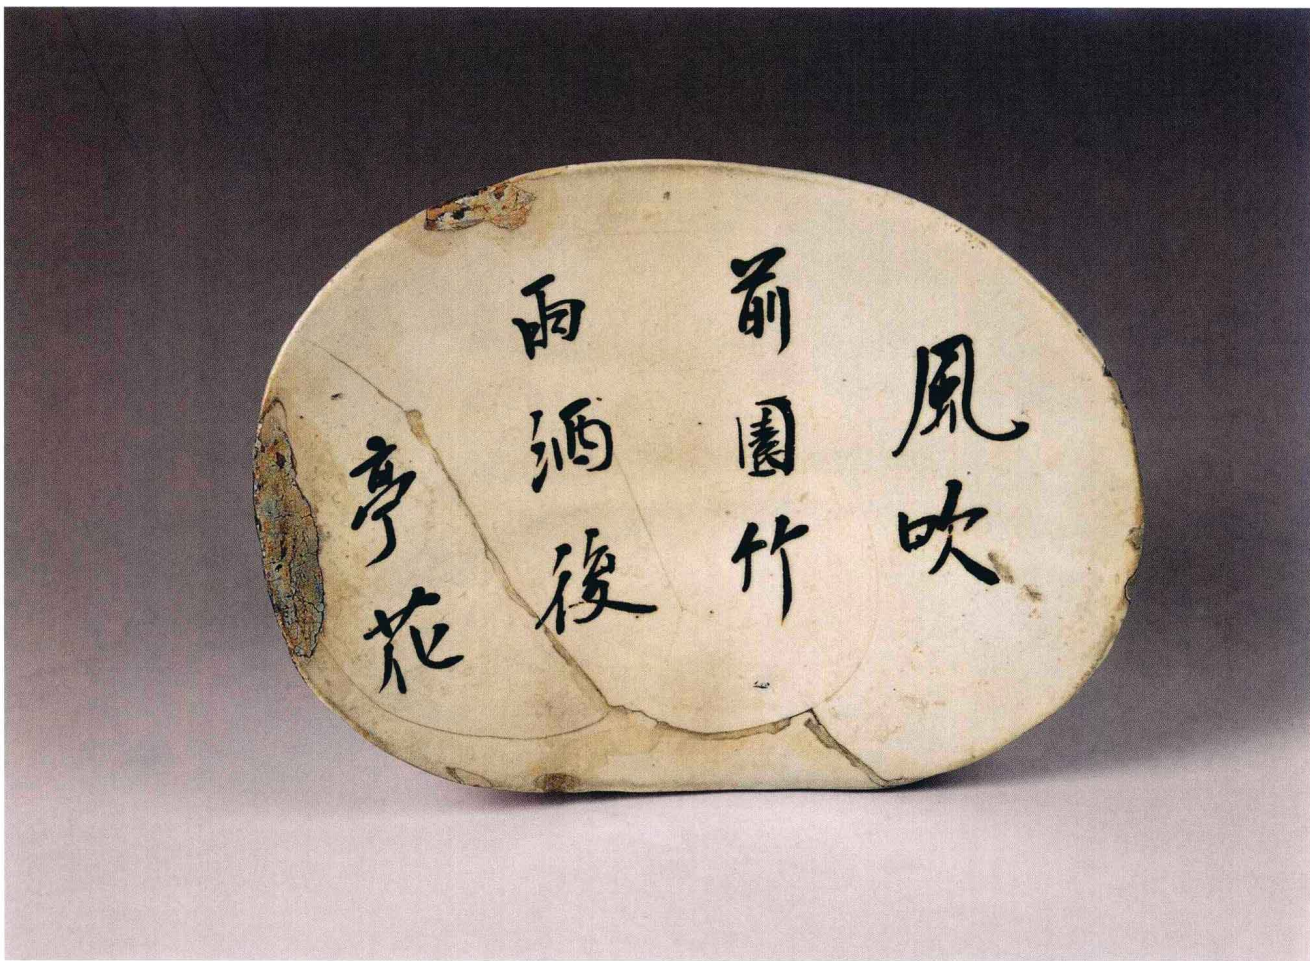 風吹
前園竹
雨洒後
亭花